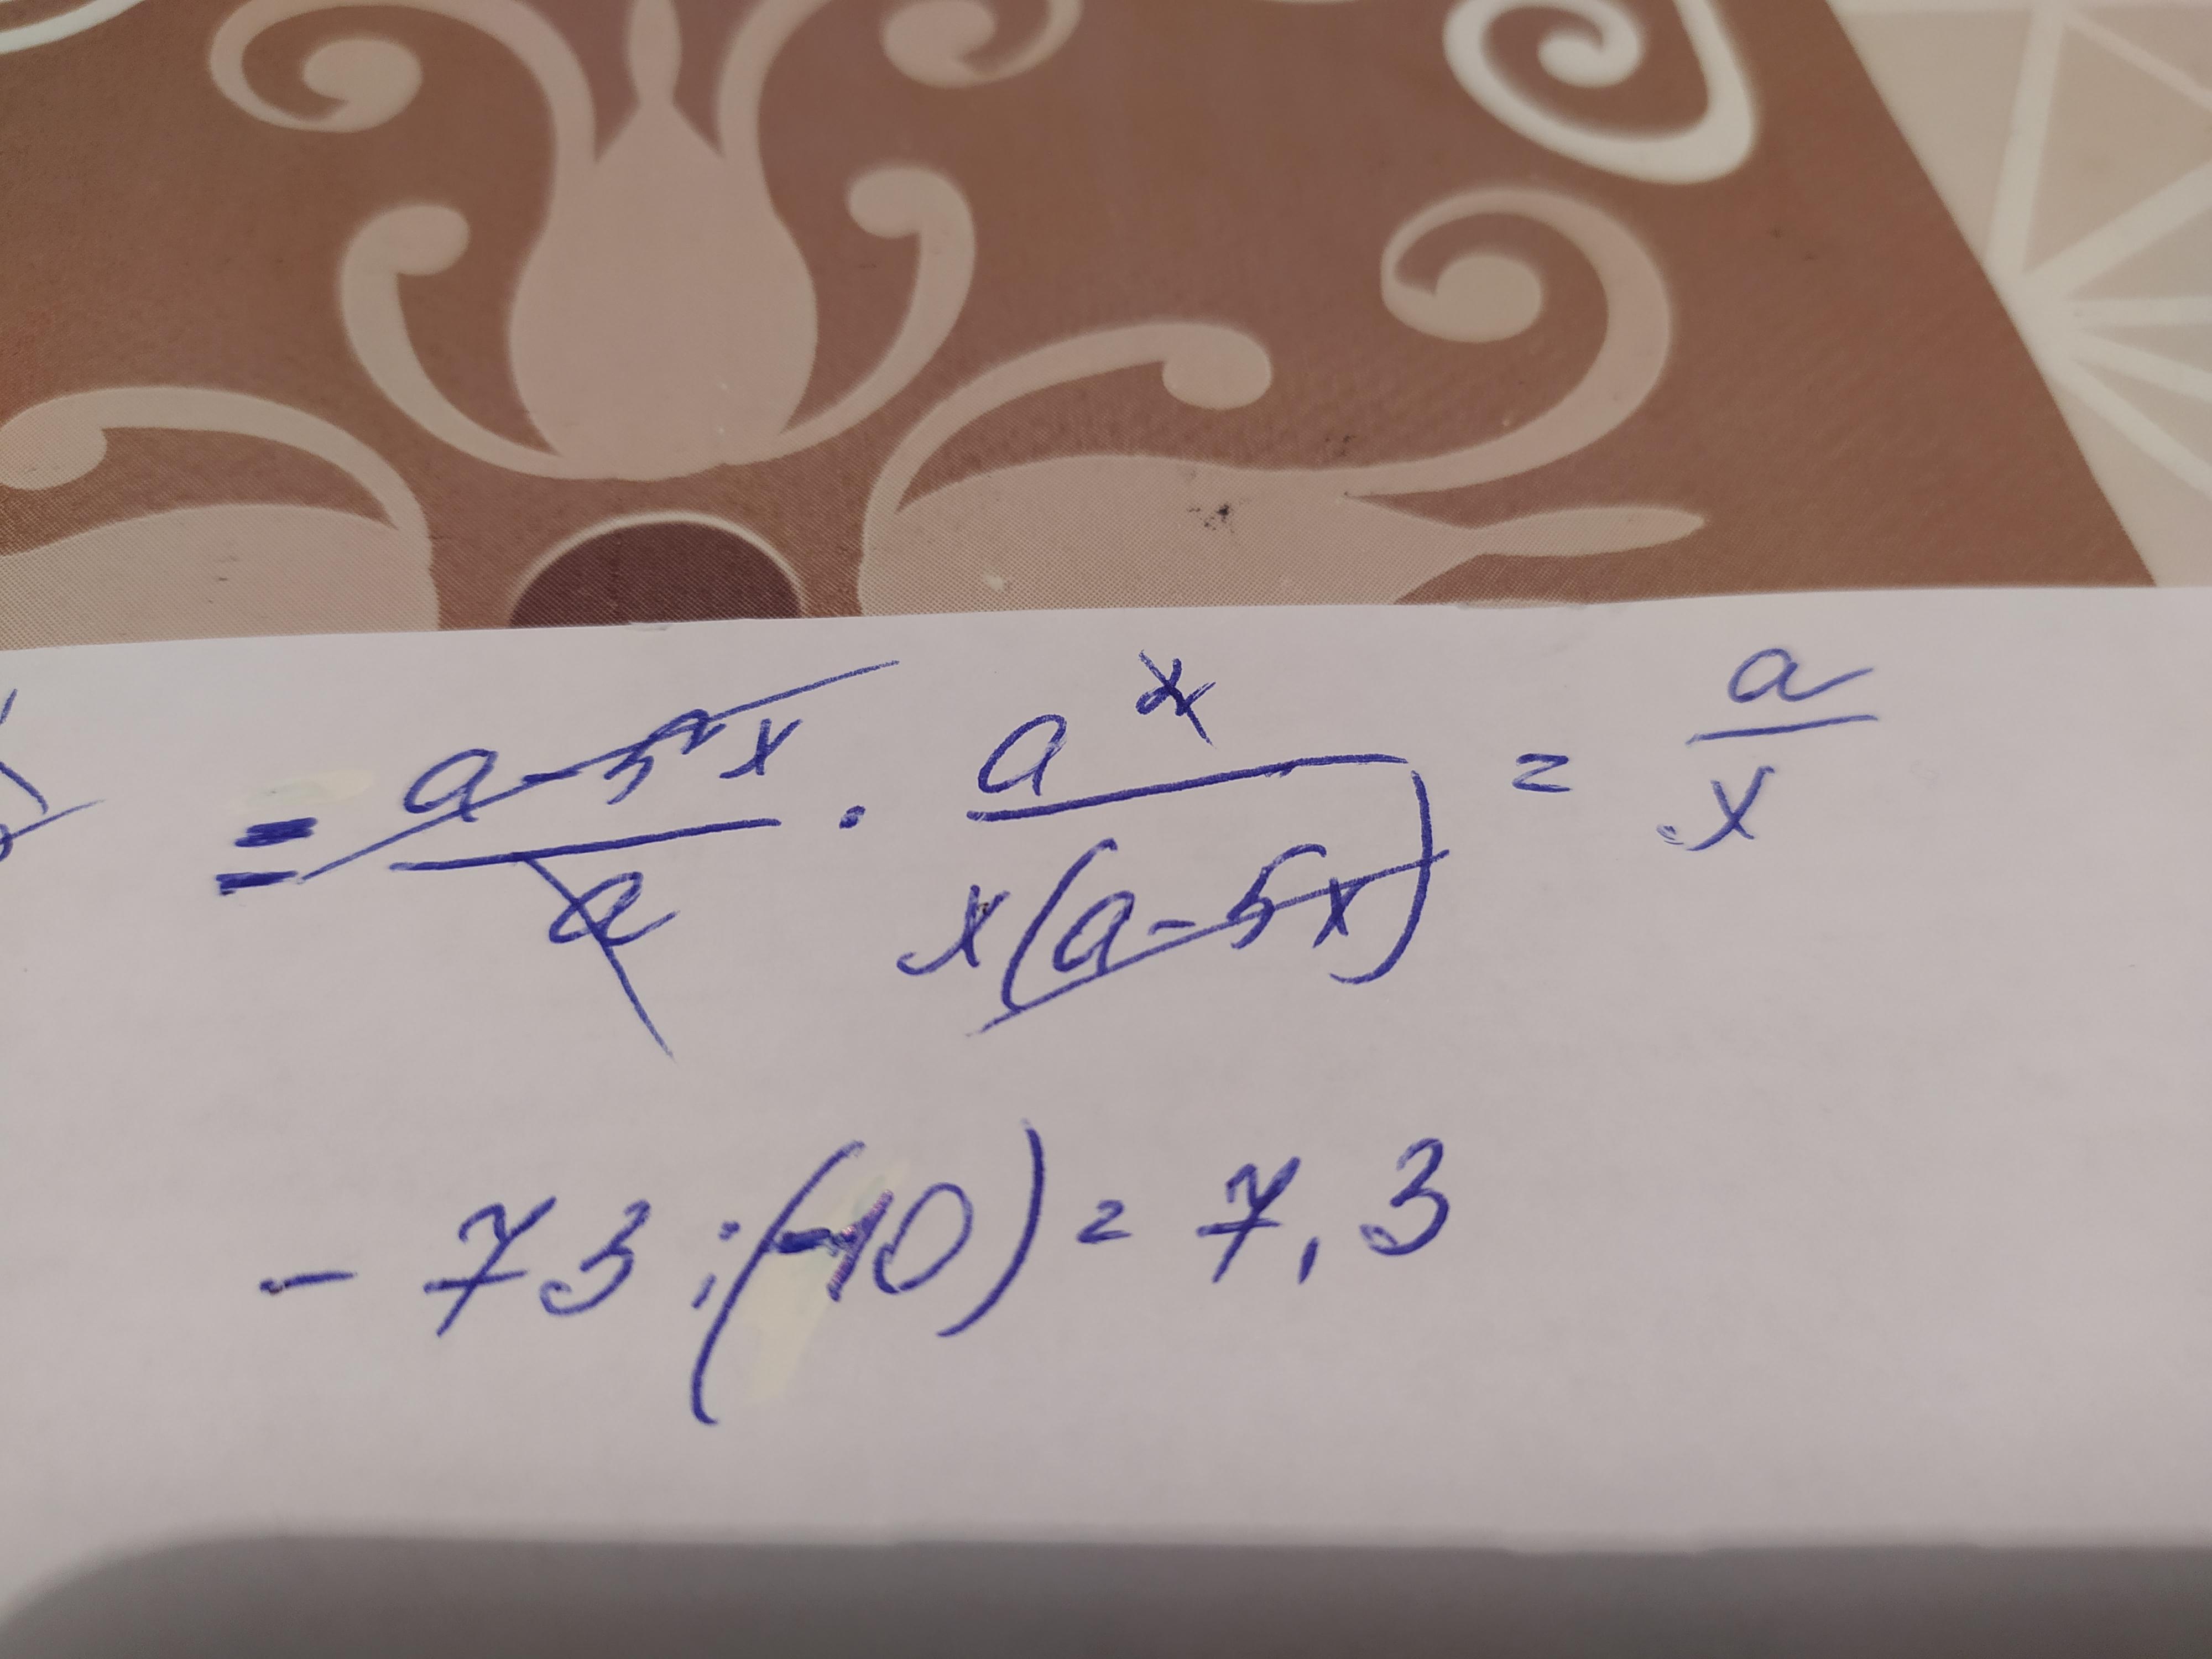 = a-5x / a · a² / x(a-5x) = a / x
- 73 : (-10) = 7,3